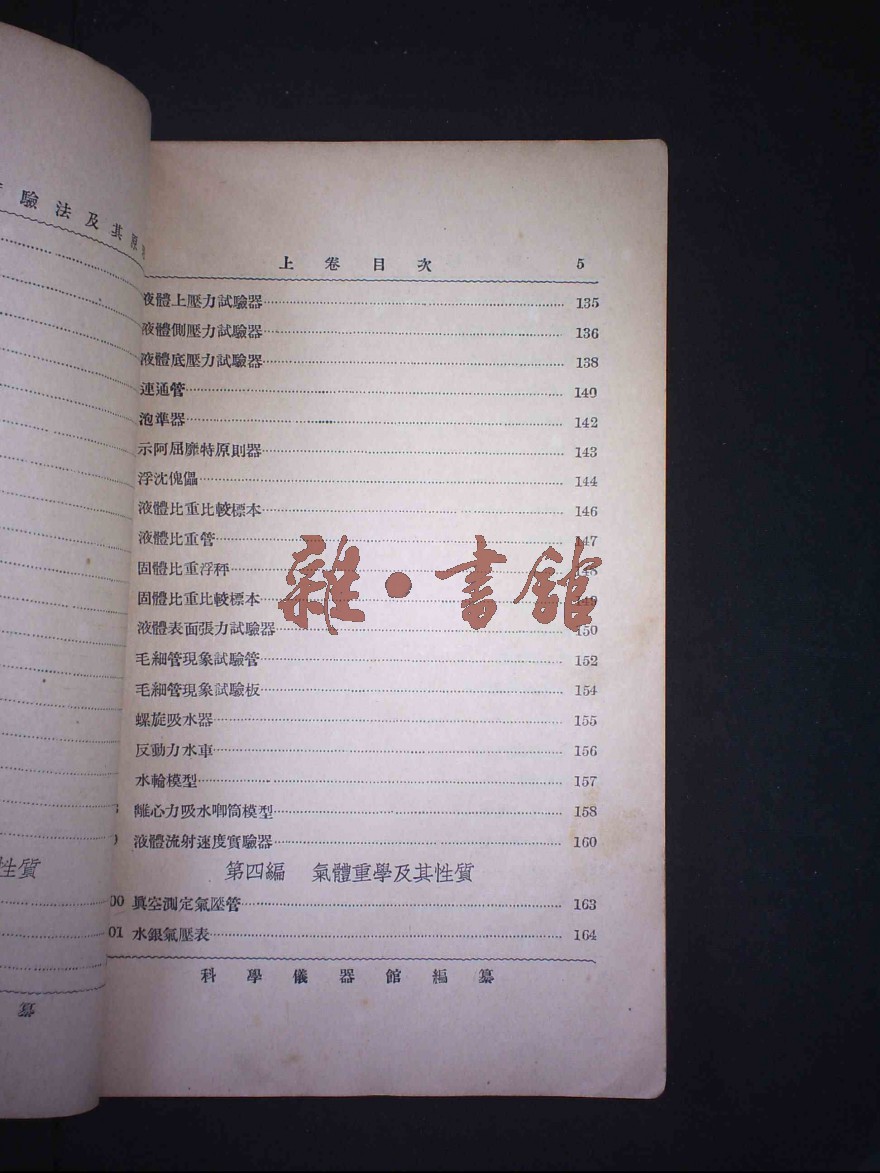 驗法及其原
性质
上卷目次 5
液體上壓力試驗器 135
液體側壓力試驗器 136
液體底壓力試驗器 138
連通管 140
泡準器 142
示阿屈靡特原則器 143
浮沈傀儡 144
液體比重比較標本 146
液體比重管 147
固體比重浮秤 148
固體比重比較標本 149
液體表面張力試驗器 150
毛細管現象試驗管 152
毛細管現象試驗板 154
螺旋吸水器 155
反動力水車 156
水輪模型 157
離心力吸水喞筒模型 158
液體流射速度實驗器 160
第四編 氣體重學及其性质
00 眞空測定氣壓管 163
01 水銀氣壓表 164
科學儀器館編纂
雜·書館